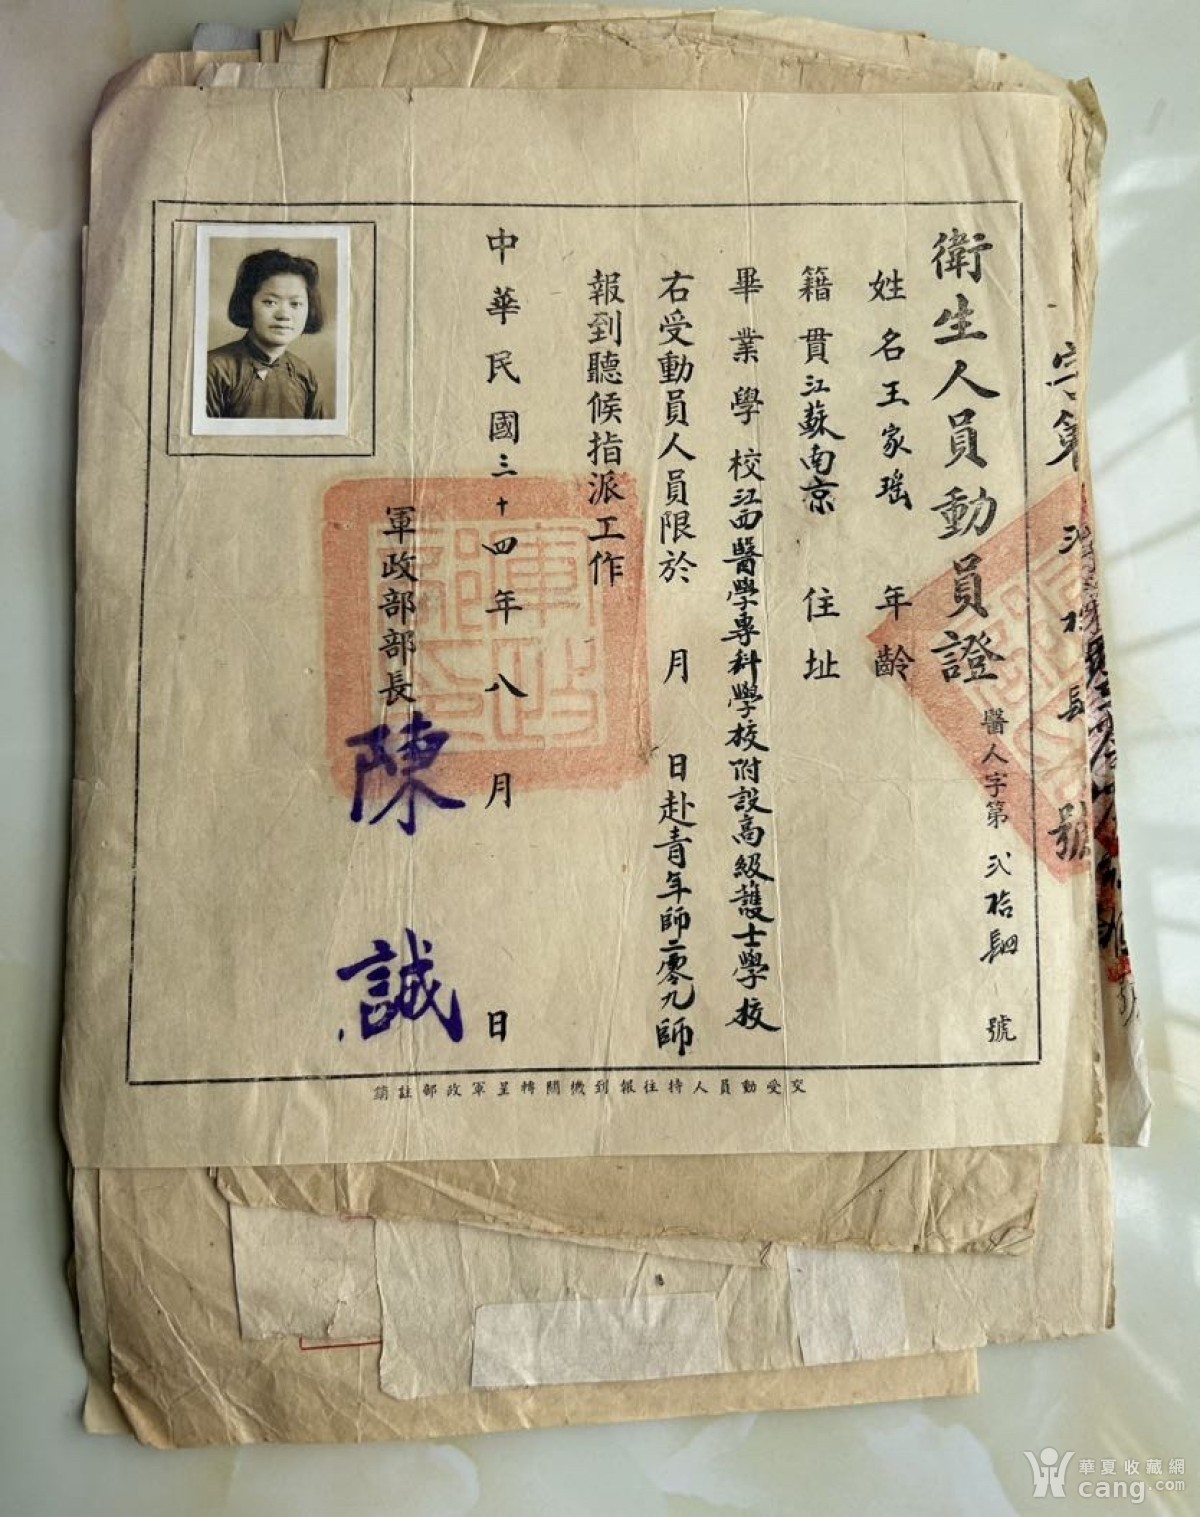 字第
號
衛生人員動員證
醫人字第貳拾肆號
姓名王家瑤 年齡
籍貫江蘇南京 住址
畢業學校江西醫學專科學校附設高級護士學校
右受動員人員限於 月 日赴青年師二零九師
報到聽候指派工作
中華民國三十四年八月 日
軍政部部長
陳誠
交受動員人持往報到機關轉呈軍政部註銷
華夏收藏網
cang.com